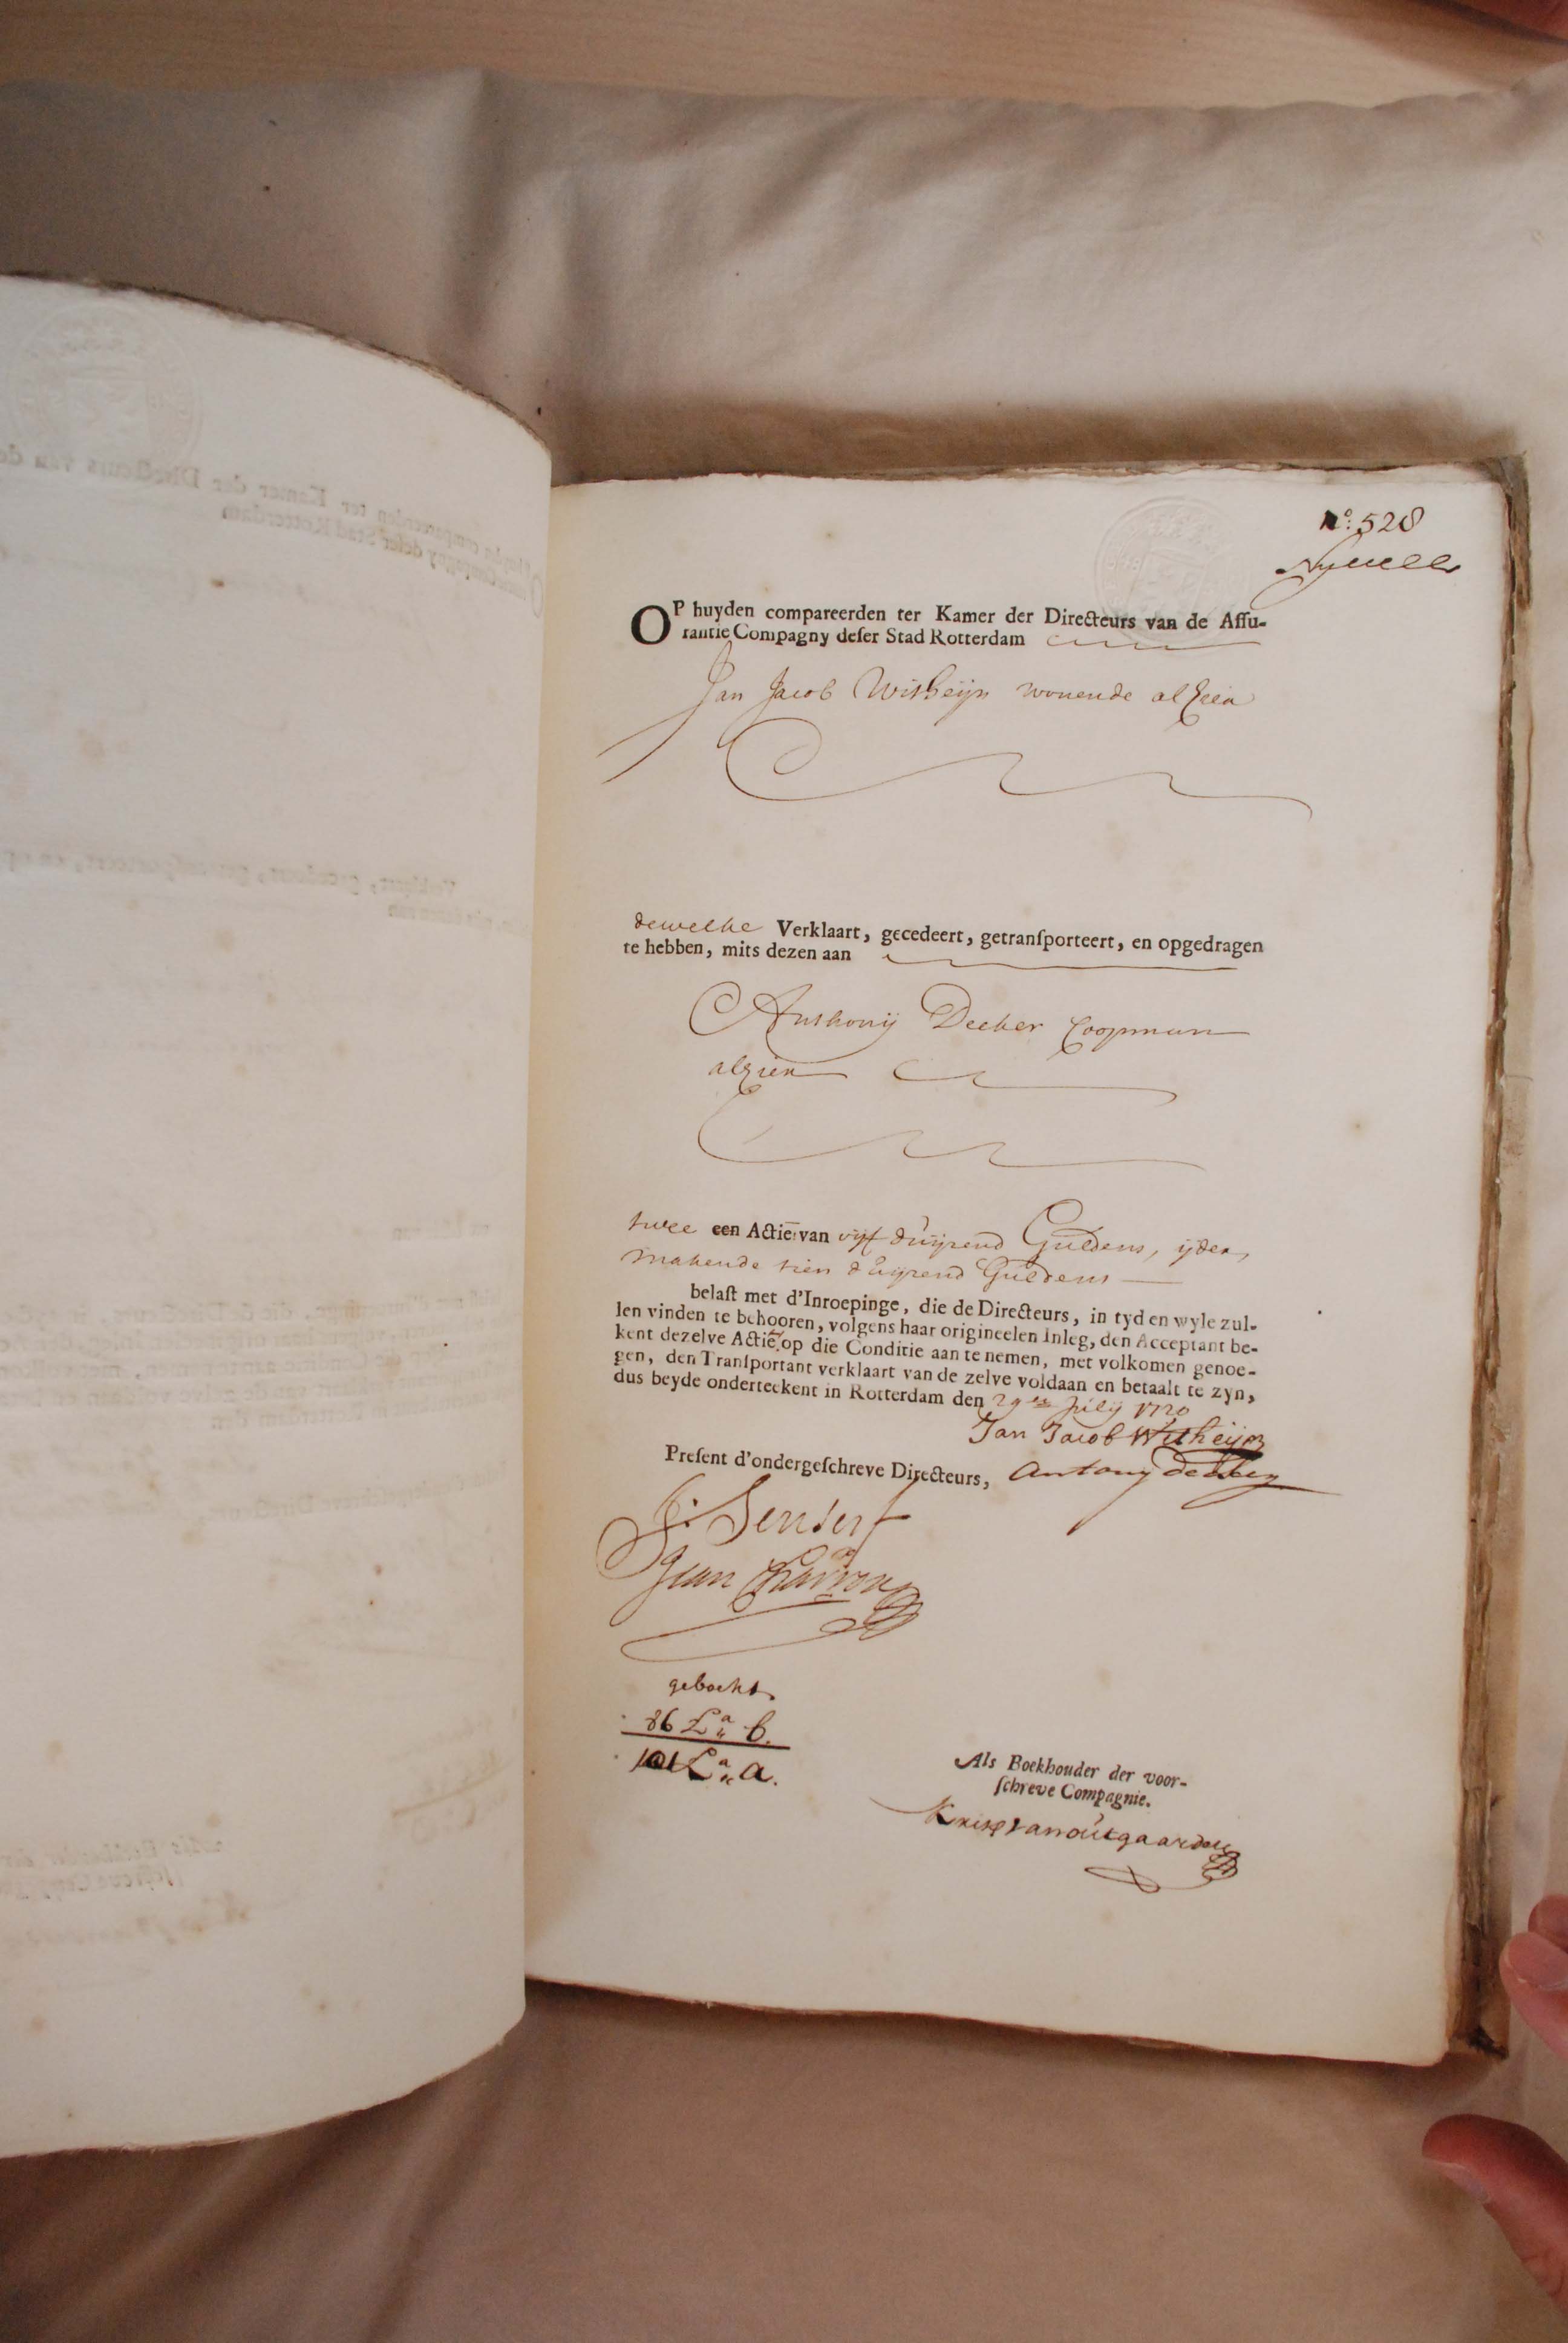 N:o 528
OP huyden compareerden ter Kamer der Directeurs van de Assu-
rantie Compagny deser Stad Rotterdam
Jan Jacob Witheijn wonende alhier
dewelke Verklaart, gecedeert, getransporteert, en opgedragen
te hebben, mits dezen aan
Anthonij Decker Coopman
alhier
twee een Actie van vijf duijzend Guldens, ijder,
makende tien duijzend Guldens
belast met d'Inroepinge, die de Directeurs, in tyd en wyle zul-
len vinden te behooren, volgens haar origineelen Inleg, den Acceptant be-
kent dezelve Actie op die Conditie aan te nemen, met volkomen genoe-
gen, den Transportant verklaart van de zelve voldaan en betaalt te zyn,
dus beyde onderteekent in Rotterdam den 29en Julij 1720
Jan Jacob Witheijn
Present d'ondergeschreve Directeurs, Antony Decker
J: Senserf
Jean Charron
geboekt
86 La b.
101 La a.
Als Boekhouder der voor-
schreve Compagnie.
van outgaarden